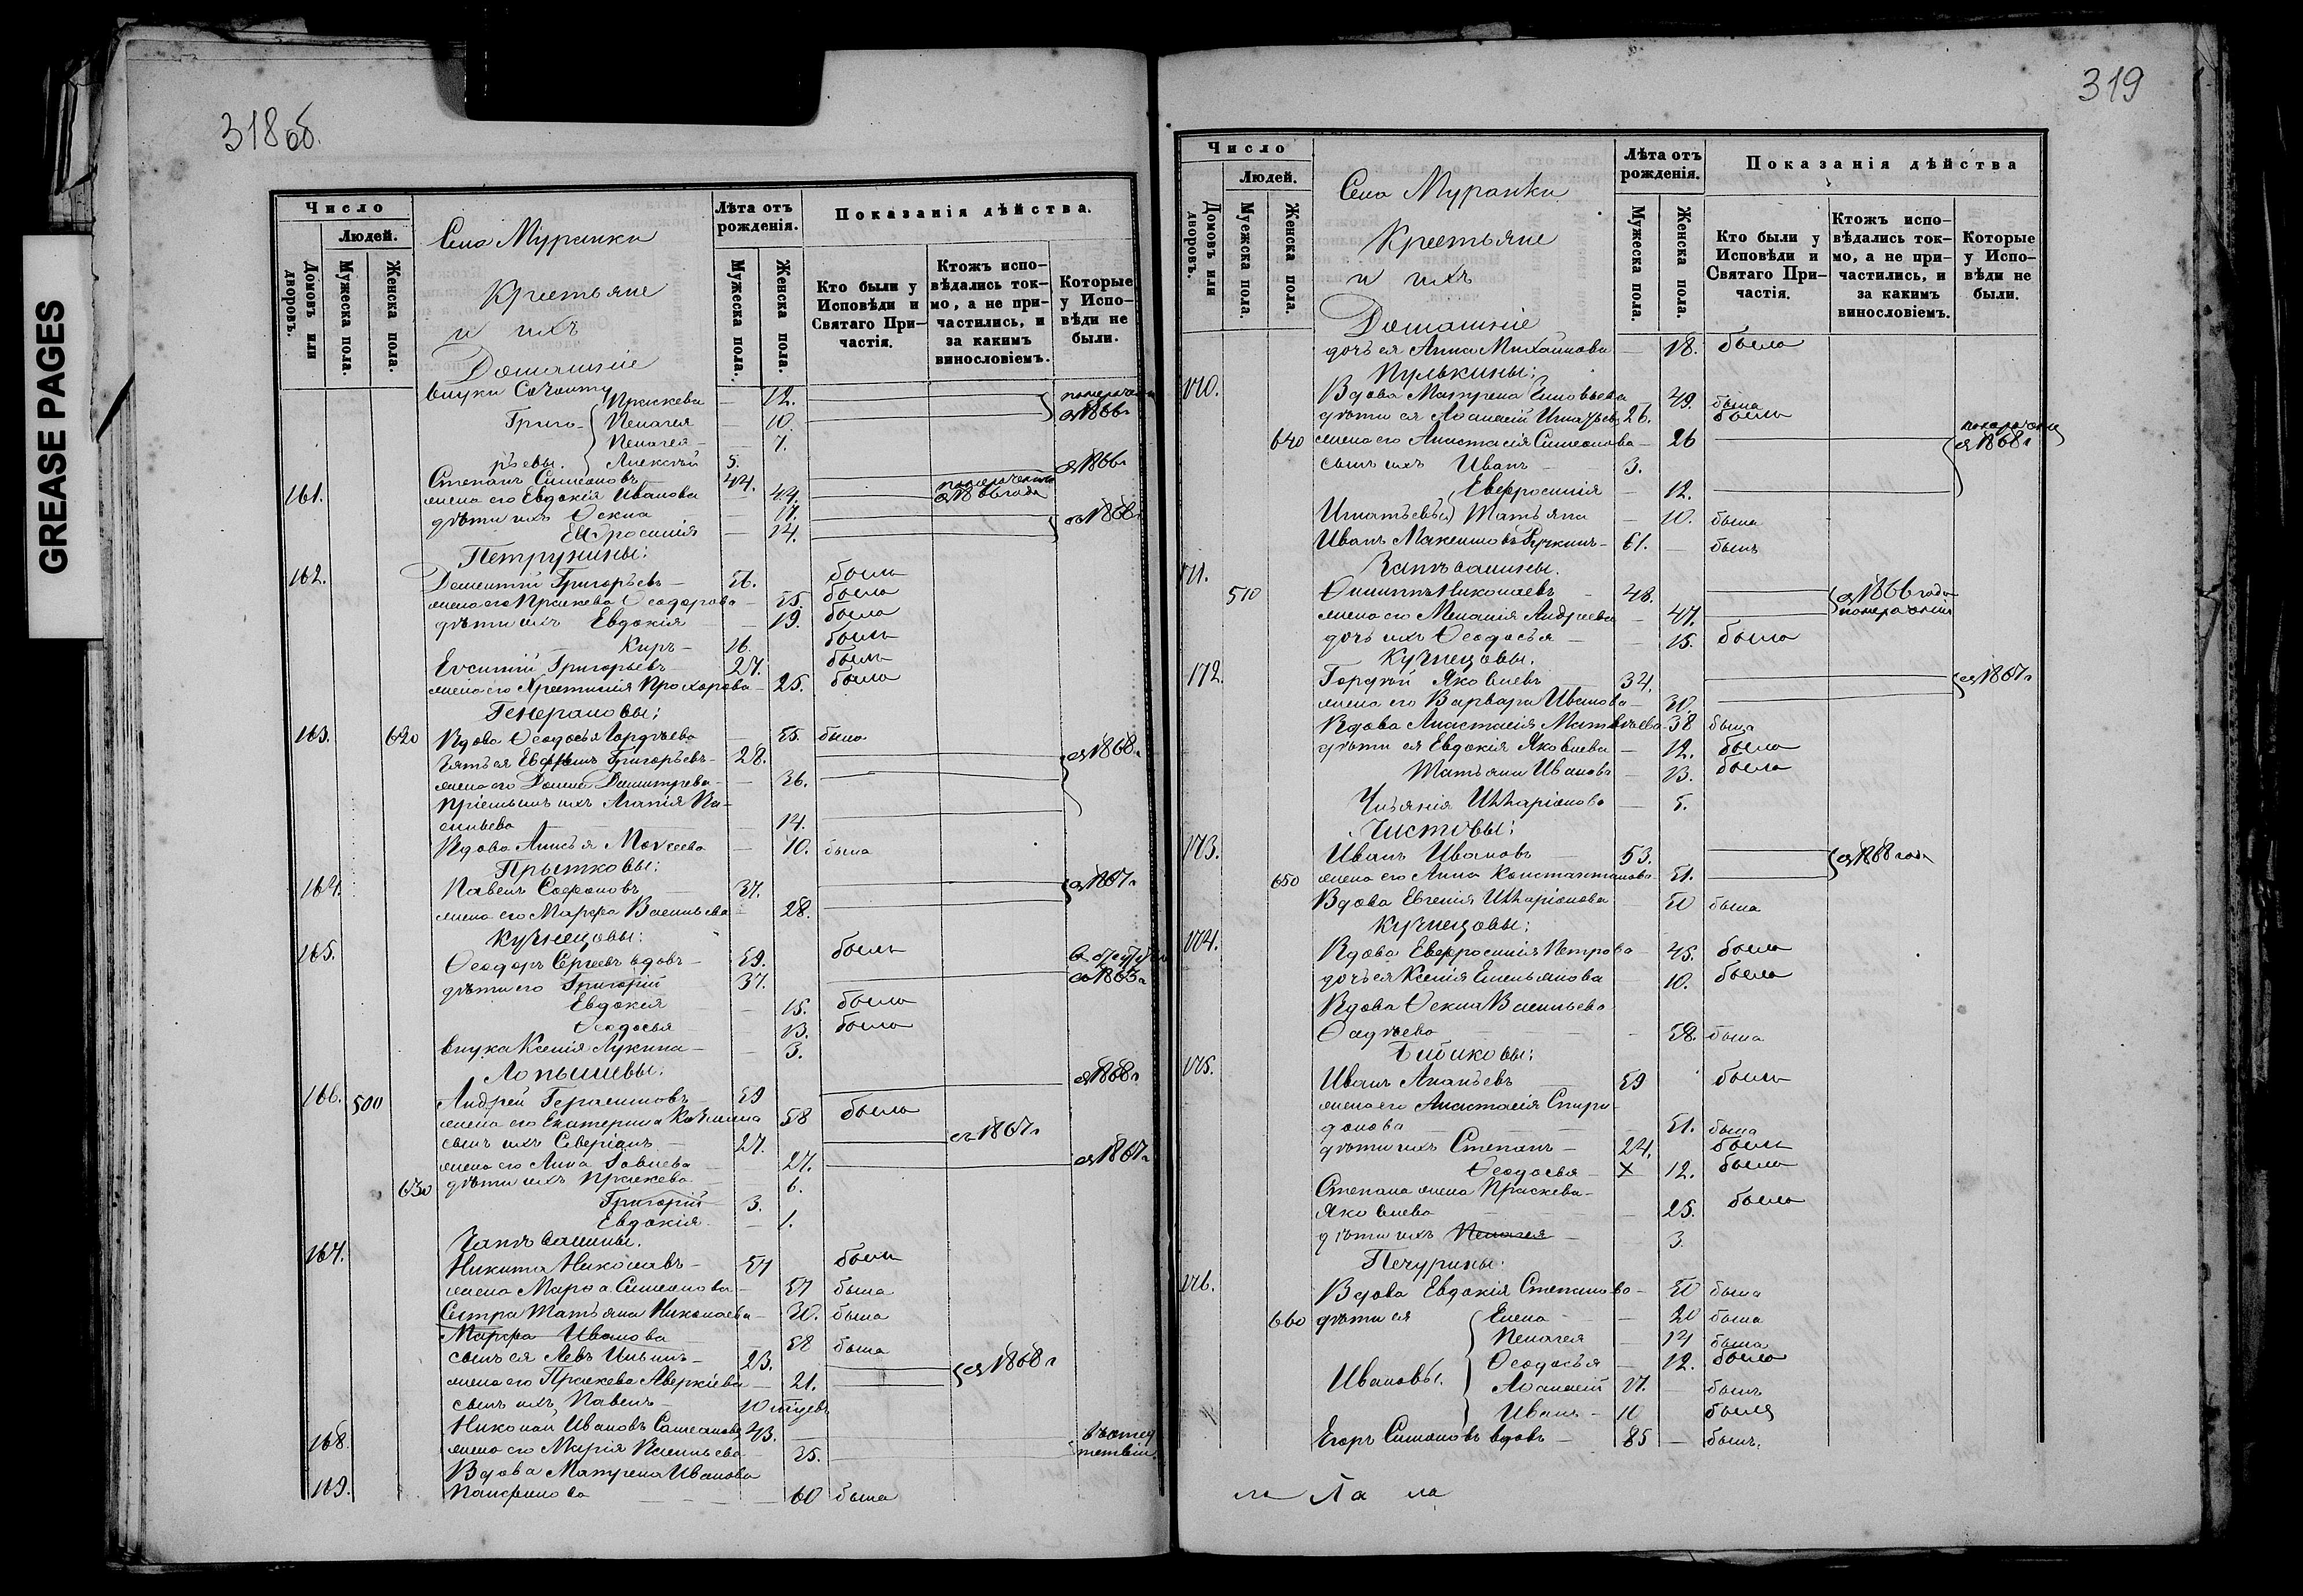 GREASE PAGES
318 об.
Число
Людей.
Домовъ или дворовъ.
Мужеска пола.
Женска пола.
Села Муранки
Крестьяне
и ихъ
Домашніе
Лѣта отъ рожденія.
Мужеска пола.
Женска пола.
Показанія дѣйства.
Кто были у Исповѣди и Святаго Причастія.
Ктожъ исповѣдались токмо, а не причастились, и за какимъ винословіемъ.
Которые у Исповѣди не были.
внуки
Праскева — 12.
Григо- Пелагея — 10. съ 1866 г
Пелагея — 7.
рьевы. Алексѣй 5.
161. Степанъ Симеоновъ 44. съ 1866 г
жена его Евдокія Иванова 44. съ 1866 года
дѣти ихъ Ѳекла — 17.
Евфросинія — 14. съ 1868 г
Петрунины:
162. Дометій Григорьевъ — былъ
жена его Праскева Ѳеодорова — 55. была
дѣти ихъ Евдокія — 19. была
Киръ — 16. былъ
Евсигній Григорьевъ — 27. былъ
жена его Христинія Прохорова — 25. была
Генераловы:
163. 620 Вдова Ѳеодосья Гордѣева — 55. была
Зять ея Григорьевъ — 28. съ 1868 г
жена его Домна Димитріева — 36.
пріемышъ ихъ Агапія Ва-
сильева — 14.
Вдова Анисья Моисеева — 70. была
Прытковы:
164. Павелъ Софоновъ — 37. съ 1867 г
жена его Марфа Васильева — 28.
Кузнецовы:
165. Ѳеодоръ Сергеевъ вдовъ — 59. былъ
дѣти его Григорій — 37. съ 1865 г
Евдокія — 15. была
Ѳеодосья — 13. была
внука Ксенія Лукина — 3.
Лопышевы:
166. 500 Андрей Герасимовъ — 59 съ 1868 г
жена его Екатерина Козмина 58 была
сынъ ихъ Северіанъ — 27. съ 1867 г
жена его Анна Іовлева — 27. съ 1867 г
630 дѣти ихъ Праскева — 6.
Григорій — 3.
Евдокія — 1.
Запѣвалины.
167. Никита Николаевъ — 57 былъ
жена Марѳа Симеонова — 57 была
Сестра Татьяна Николаева — 30. была
Марфа Иванова 58 была
сынъ ея Левъ Ильинъ — 23. съ 1868 г
жена его Праскева Аверкіева — 21.
сынъ ихъ Павелъ — 10 мѣсяцевъ
168. Николай Ивановъ 43.
жена его Марія Васильева — 35.
169. Вдова Матрена Иванова
Панферова — 60 была
319
Число
Людей.
Домовъ или дворовъ.
Мужеска пола.
Женска пола.
Села Муранки
Крестьяне
и ихъ
Домашніе
Лѣта отъ рожденія.
Мужеска пола.
Женска пола.
Показанія дѣйства
Кто были у Исповѣди и Святаго Причастія.
Ктожъ исповѣдались токмо, а не причастились, и за какимъ винословіемъ.
Которые у Исповѣди не были.
дочь ея Анна Михайлова — 18. была
Пулькины:
170. Вдова Матрена Зиновьева — 49. была
дѣти ея Аѳанасій Игнатьевъ 26. былъ
640 жена его Анастасія Симеонова — 26 съ 1868 г
сынъ ихъ Иванъ — 3.
Евфросинія — 12.
Игнатьевы Татьяна — 10. была
Иванъ Максимовъ — 61. — былъ
Запѣвалины.
171. 510 Филиппъ Николаевъ — 48. съ 1866 года
жена его Меланія Андреева — 47.
дочь ихъ Ѳеодосья — 15. была
Кузнецовы.
172. Гордѣй Яковлевъ 34. съ 1867 г
жена его Варвара Иванова — 30.
Вдова Анастасія Матвѣева 38 была
дѣти ея Евдокія Яковлева — 12. была
Татьяна Иванова — 13. была
Ульянія Илларіонова — 5.
Чистовы:
173. Иванъ Ивановъ 53. съ 1868 года
650 жена его Анна Константинова 51.
Вдова Евгенія Илларіонова — 50 была
Кузнецовы:
174. Вдова Евфросинія Петрова — 45. была
дочь ея Ксенія Емельянова — 10. была
Вдова Ѳекла Васильева
Фадѣева — 58. была
Бибиковы:
175. Иванъ Ананьевъ 59 былъ
жена его Анастасія Спири-
донова 51. была
дѣти ихъ Степанъ — 24. былъ
Ѳеодосья — х 12. была
Степана жена Праскева
Яковлева — 25. была
дѣти ихъ Пелагея — 3.
Печурины:
176. Вдова Евдокія Степанова — 50 была
660 дѣти ея Елена — 20 была
Пелагея — 14 была
Ѳеодосья — 12. была
Ивановы. Аѳанасій 17. — былъ
Иванъ — 10 былъ
Егоръ Симоновъ вдовъ — 85 — былъ.